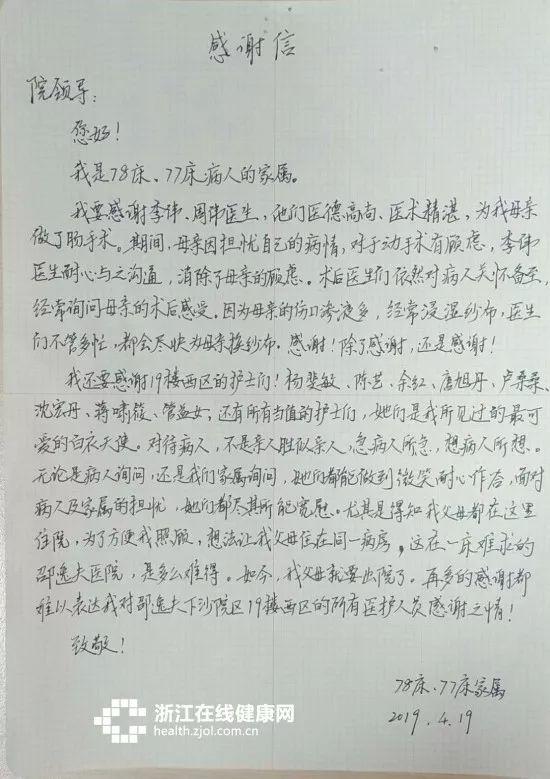 感谢信
院领导：
您好！
我是78床、77床病人的家属。
我要感谢李伟、周伟医生，他们医德高尚、医术精湛，为我母亲
做了肠手术。期间，母亲因担忧自己的病情，对于动手术有顾虑，李伟
医生耐心与之沟通，消除了母亲的顾虑。术后医生们依然对病人关怀备至，
经常询问母亲的术后感受。因为母亲的伤口渗液多，经常浸湿纱布，医生
们不管多忙，都会尽快为母亲换纱布。感谢！除了感谢，还是感谢！
我还要感谢19楼西区的护士们！杨斐敏、陈艺、余红、唐旭丹、卢桑桑、
沈宏丹、蒋啸筱、管益女，还有所有当值的护士们，她们是我所见过的最可
爱的白衣天使。对待病人，不是亲人胜似亲人，急病人所急，想病人所想。
无论是病人询问，还是我们家属询问，她们都能做到微笑耐心作答，面对
病人及家属的担忧，她们都尽其所能宽慰。尤其是得知我父母都在这里
住院，为了方便我照顾，想法让我父母住在同一病房，这在一床难求的
邵逸夫医院，是多么难得。如今，我父母就要出院了。再多的感谢都
难以表达我对邵逸夫下沙院区19楼西区的所有医护人员感谢之情！
致敬！
78床、77床家属
2019.4.19
浙江在线健康网
health.zjol.com.cn